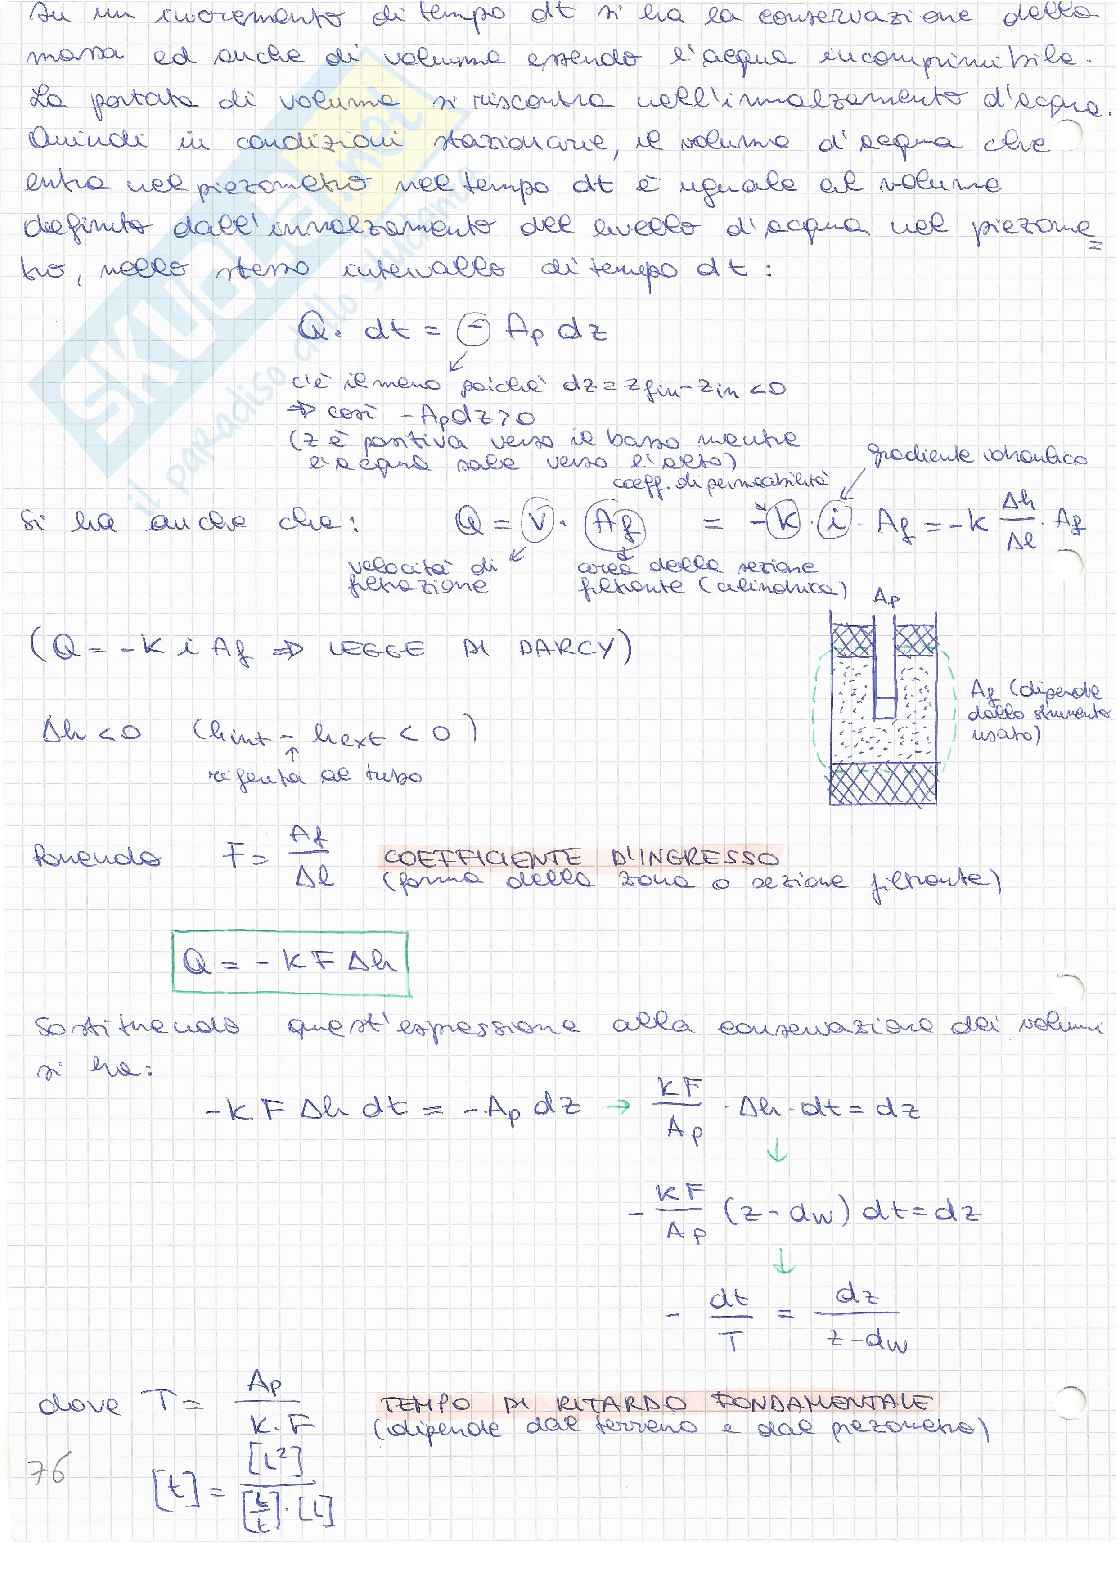 In un incremento di tempo dt si ha la conservazione della
massa ed anche di volume essendo l'acqua incomprimibile.
La portata di volume si riscontra nell'innalzamento d'acqua.
Quindi in condizioni stazionarie, il volume d'acqua che
entra nel piezometro nel tempo dt è uguale al volume
definito dall'innalzamento del livello d'acqua nel piezome=
tro, nello stesso intervallo di tempo dt:
Q · dt = - Ap dz
c'è il meno poiché dz = zfin - zin < 0
⇒ così - Ap dz > 0
(z è positiva verso il basso mentre
l'acqua sale verso l'alto)
gradiente idraulico
coeff. di permeabilità
Si ha anche che: Q = v · Af = - k · i · Af = - k Δh/Δl · Af
velocità di filtrazione
area della sezione filtrante (cilindrica)
Ap
(Q = - k i Af ⇒ LEGGE DI DARCY)
Af (dipende
dallo strumento
usato)
Δh < 0 (hint - hext < 0)
riferita al tubo
Ponendo F = Af/Δl COEFFICIENTE D'INGRESSO
(forma della zona o sezione filtrante)
Q = - k F Δh
Sostituendo quest'espressione alla conservazione dei volumi
si ha:
- k F Δh dt = - Ap dz → kF/Ap · Δh · dt = dz
- kF/Ap (z - dw) dt = dz
- dt/T = dz/(z - dw)
dove T = Ap/(k · F) TEMPO DI RITARDO FONDAMENTALE
(dipende dal terreno e dal piezometro)
76
[t] = [L²]/([L/t] · [L])
SKUOLA.net
il paradiso dello studente